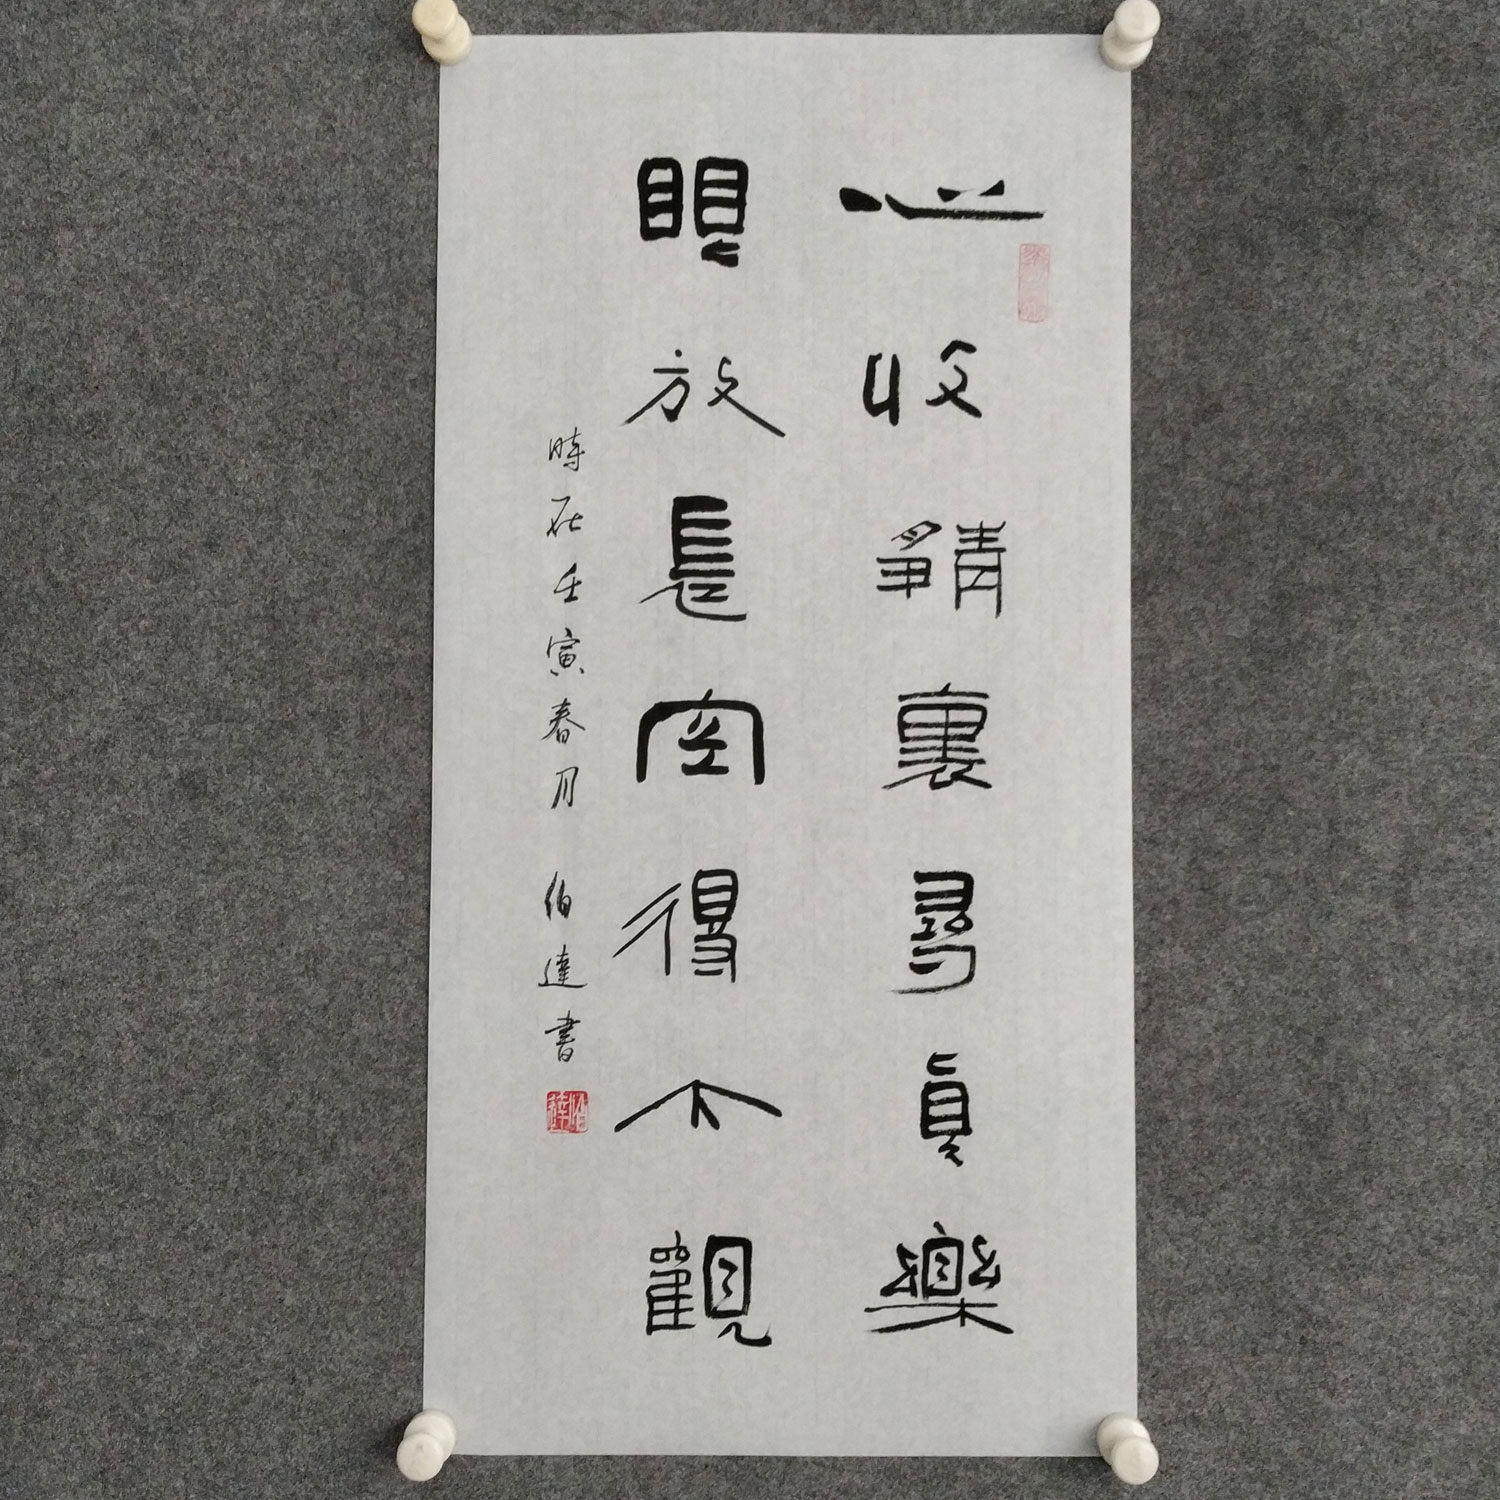 心收靜裏尋真樂
眼放長空得大觀
時在壬寅春月 伯達書
伯達